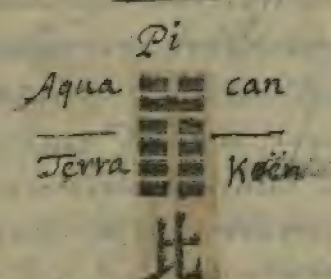 Pi
Aqua can
Terra Koën
比